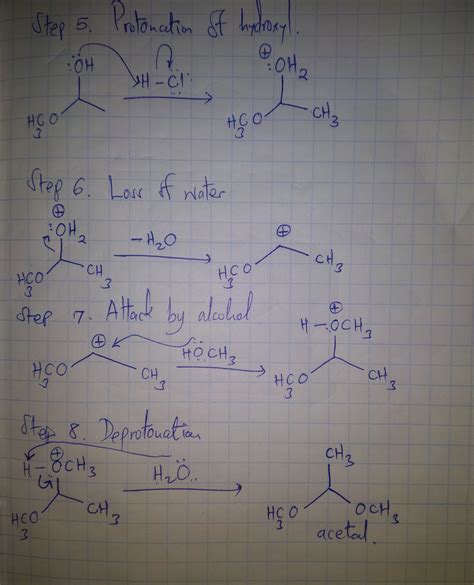 Step 5. Protonation of hydroxyl.
:ÖH H-Cl: ⊕:OH2
H3CO H3CO CH3
Step 6. Loss of water
⊕
:OH2 -H2O ⊕
H3CO CH3 H3CO CH3
Step 7. Attack by alcohol
⊕ HOCH3 H-OCH3 ⊕
H3CO CH3 H3CO CH3
Step 8. Deprotonation
H-OCH3 ⊕ H2O: CH3
H3CO CH3 H3CO OCH3
acetal.